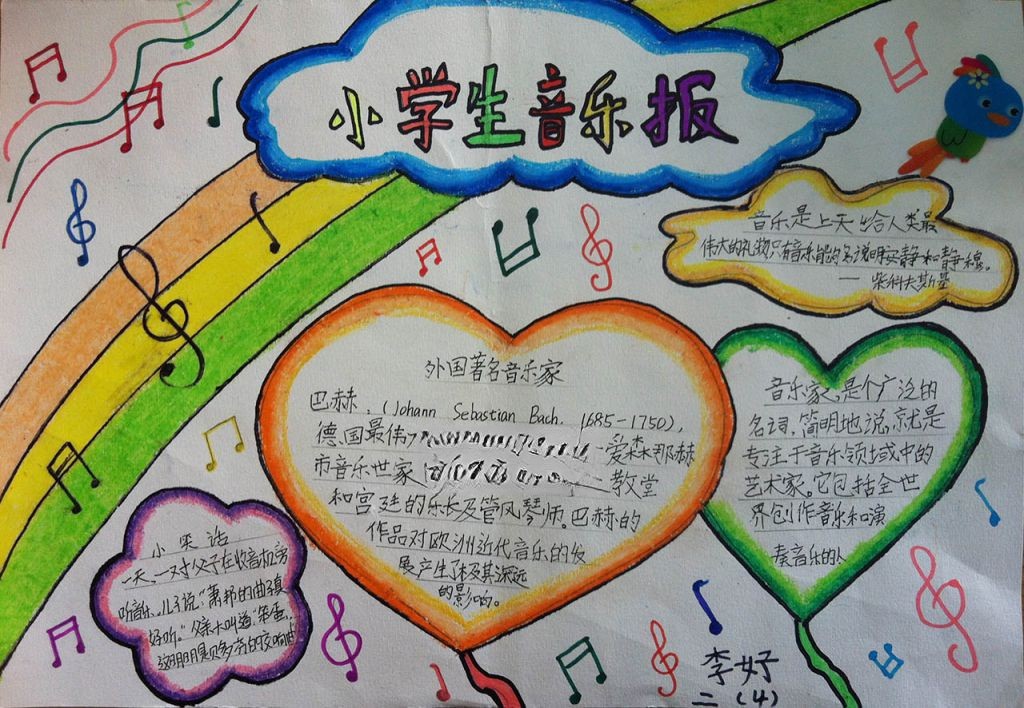 小学生音乐报
音乐是上天给人类最
伟大的礼物只有音乐能够说明安静和静穆。
— 柴科夫斯基
外国著名音乐家
巴赫,(Johann Sebastian Bach. 1685-1750),
德国最伟 爱森那赫
市音乐世家 教堂
和宫廷的乐长及管风琴师。巴赫的
作品对欧洲近代音乐的发
展产生了极其深远
的影响。
音乐家,是个广泛的
名词,简明地说,就是
专注于音乐领域中的
艺术家。它包括全世
界创作音乐和演
奏音乐的人
小笑话
一天,一对父子在收音机旁
听音乐,儿子说:"萧邦的曲子真
好听。"父亲大叫道:"笨蛋,
这明明是贝多芬的交响曲
李好
二(4)